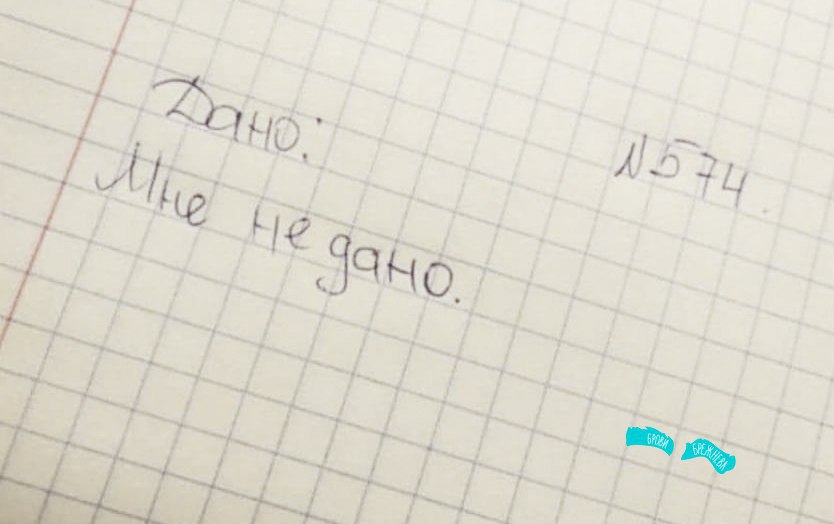 №574.
Дано:
Мне не дано.
БРОВИ БРЕЖНЕВА